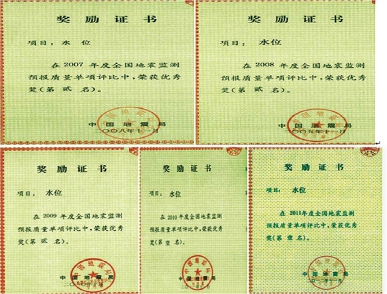 奖励证书
项目：水位
在2007年度全国地震监测
预报质量单项评比中，荣获优秀
奖(第 贰 名)。
中国地震局
二〇〇八年十一月
奖励证书
项目：水位
在2008年度全国地震监测
预报质量单项评比中，荣获优秀
奖(第 贰 名)。
中国地震局
奖励证书
项目：水位
在2009年度全国地震监测
预报质量单项评比中，荣获优秀
奖(第 贰 名)。
奖励证书
项目：水位
在2010年度全国地震监测
预报质量单项评比中，荣获优秀
奖(第 壹 名)。
奖励证书
项目：水位
在2011年度全国地震监测
预报质量单项评比中，荣获优秀
奖(第 壹 名)。